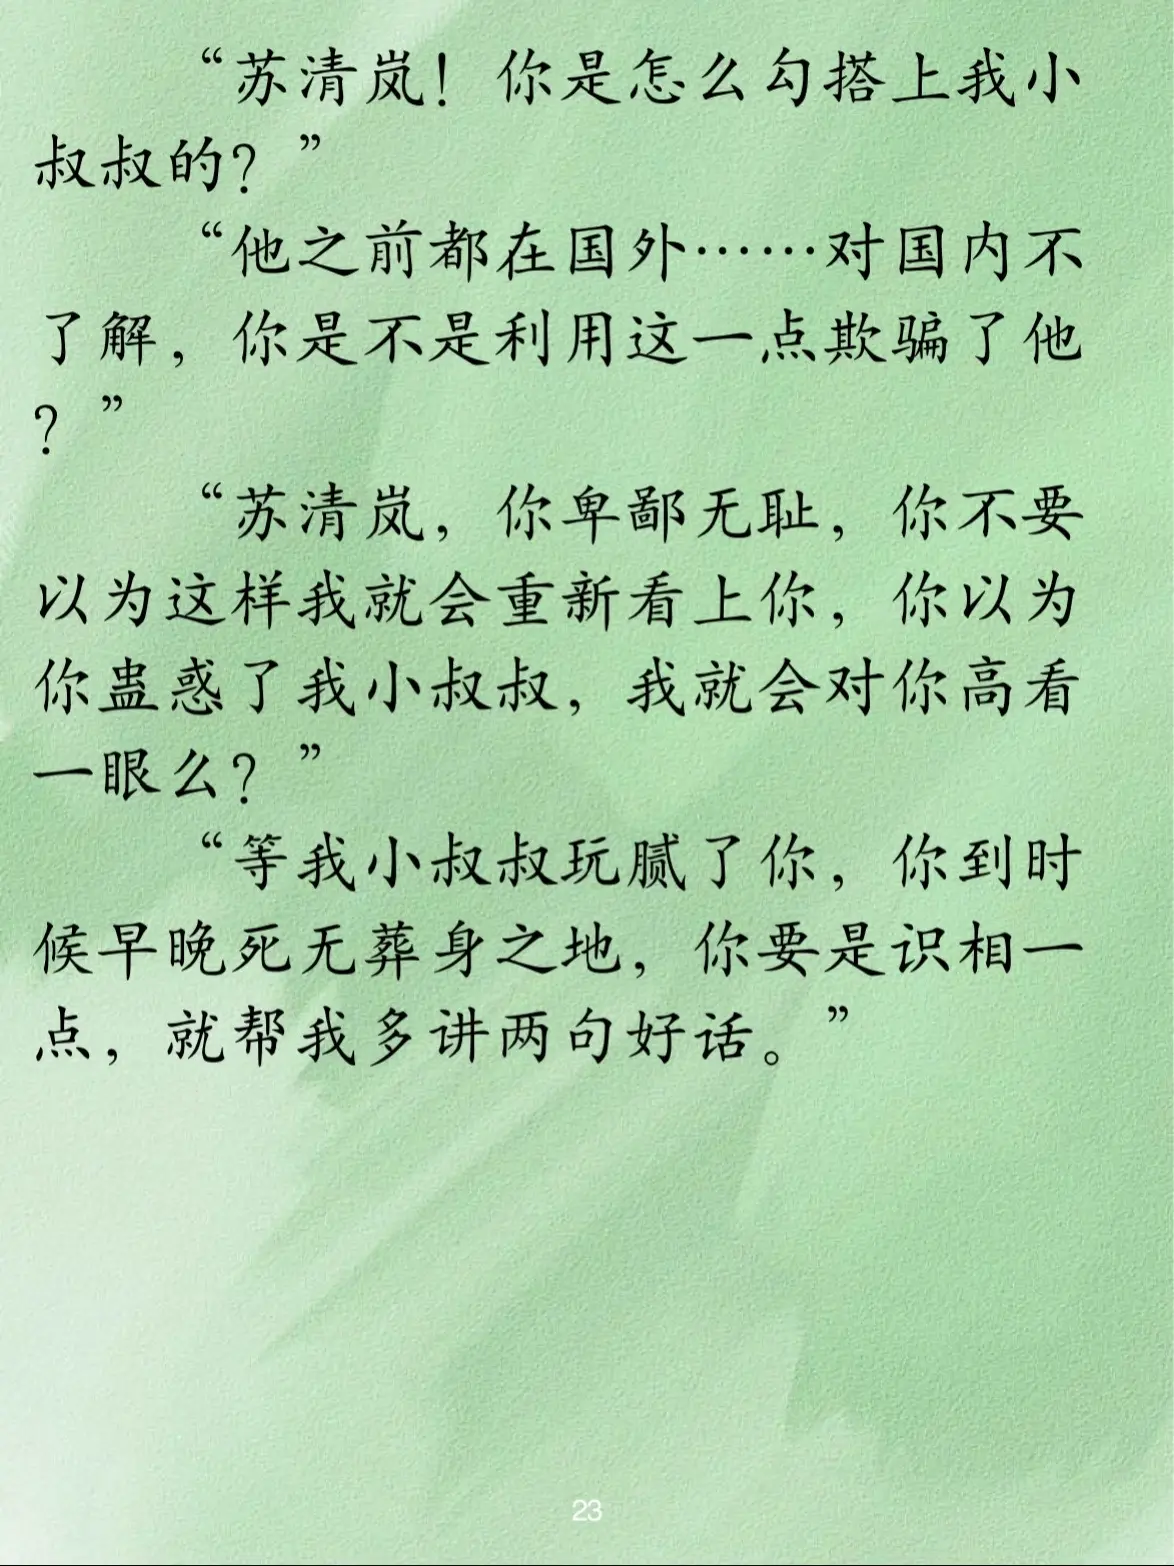 “苏清岚！你是怎么勾搭上我小
叔叔的？”
“他之前都在国外……对国内不
了解，你是不是利用这一点欺骗了他
？”
“苏清岚，你卑鄙无耻，你不要
以为这样我就会重新看上你，你以为
你蛊惑了我小叔叔，我就会对你高看
一眼么？”
“等我小叔叔玩腻了你，你到时
候早晚死无葬身之地，你要是识相一
点，就帮我多讲两句好话。”
23